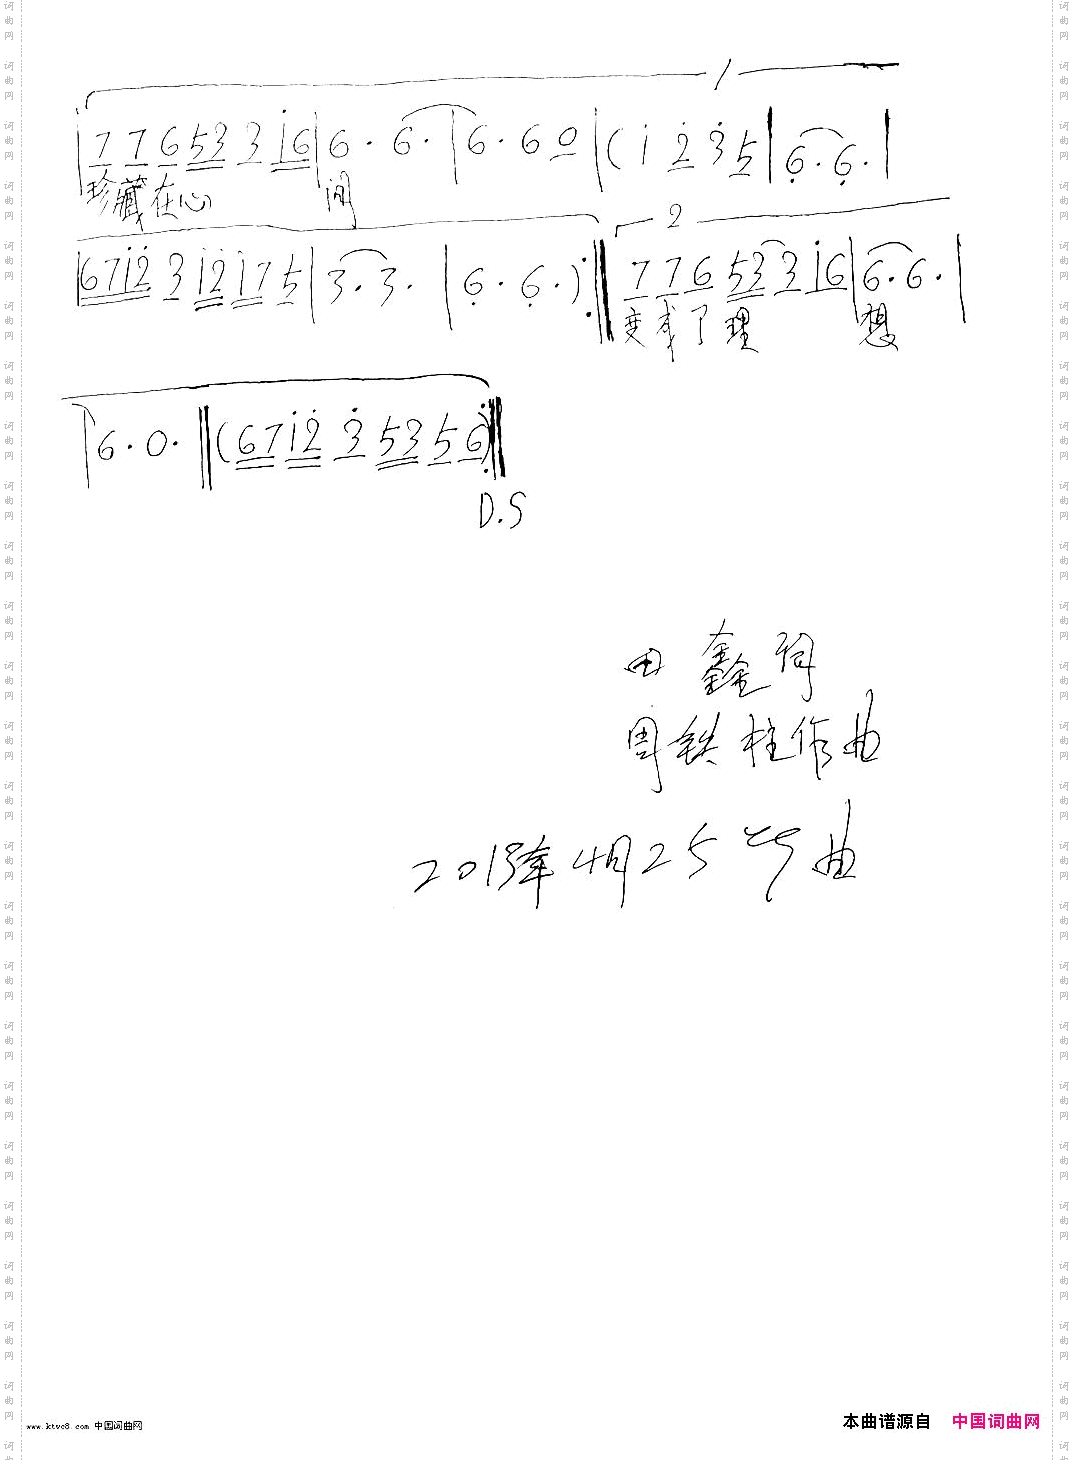 1
7 7 6 53 3 i6 | 6 · 6 · | 6 · 6 0 | ( i 2 3 5 | 6 · 6 · |
珍藏在心 间
2
67i2 3 i2 i7 5 | 3 · 3 · | 6 · 6 · ) :‖ 7 7 6 53 3 i6 | 6 · 6 · |
变成了理 想
| 6 · 0 · ‖ ( 67 i2 3 53 5 6 ) :‖
D.S
田鑫词
周铁柱作曲
2013年4月25 曲
www.ktvc8.com 中国词曲网
本曲谱源自 中国词曲网